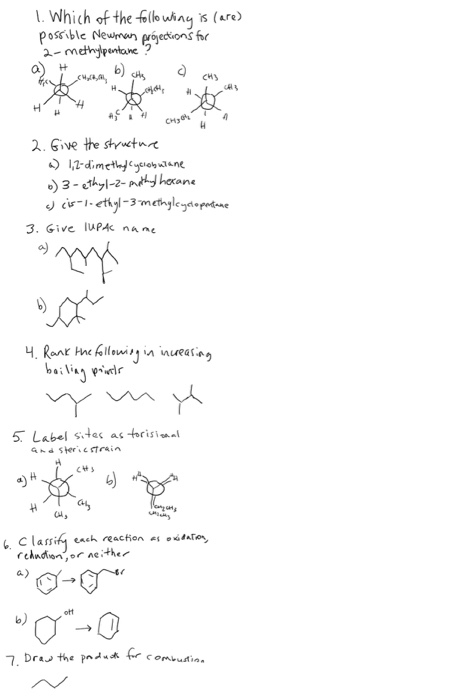 1. Which of the following is (are)
possible Newman projections for
2-methylpentane?
a) H
H3C CH2CH2CH3
H H H
b) CH3
H CH2CH3
H3C H H
c) CH3
H CH3
CH3CH2 H
H
2. Give the structure
a) 1,2-dimethylcyclobutane
b) 3-ethyl-2-methylhexane
c) cis-1-ethyl-3-methylcyclopentane
3. Give IUPAC name
a)
b)
4. Rank the following in increasing
boiling points
5. Label sites as torisional
and steric strain
a) H H CH3
H CH3 CH3
b) H H
CH2CH3
CH2CH3
6. Classify each reaction as oxidation,
reduction, or neither
a) Br
b) OH
7. Draw the products for combustion